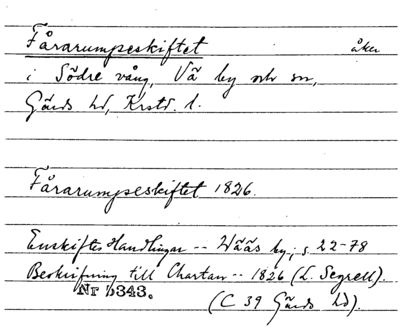 Fårarumpeskiftet åker
i Södre vång, Vä by och sn,
Gärds hd, Krstd. l.
Fårarumpseskiftet 1826.
Enskiftes Handlingar -- Wääs by, s 22-78
Beskrifning till Chartan -- 1826 (L. Segrell).
Nr 5343.
(C 39 Gärds hd).